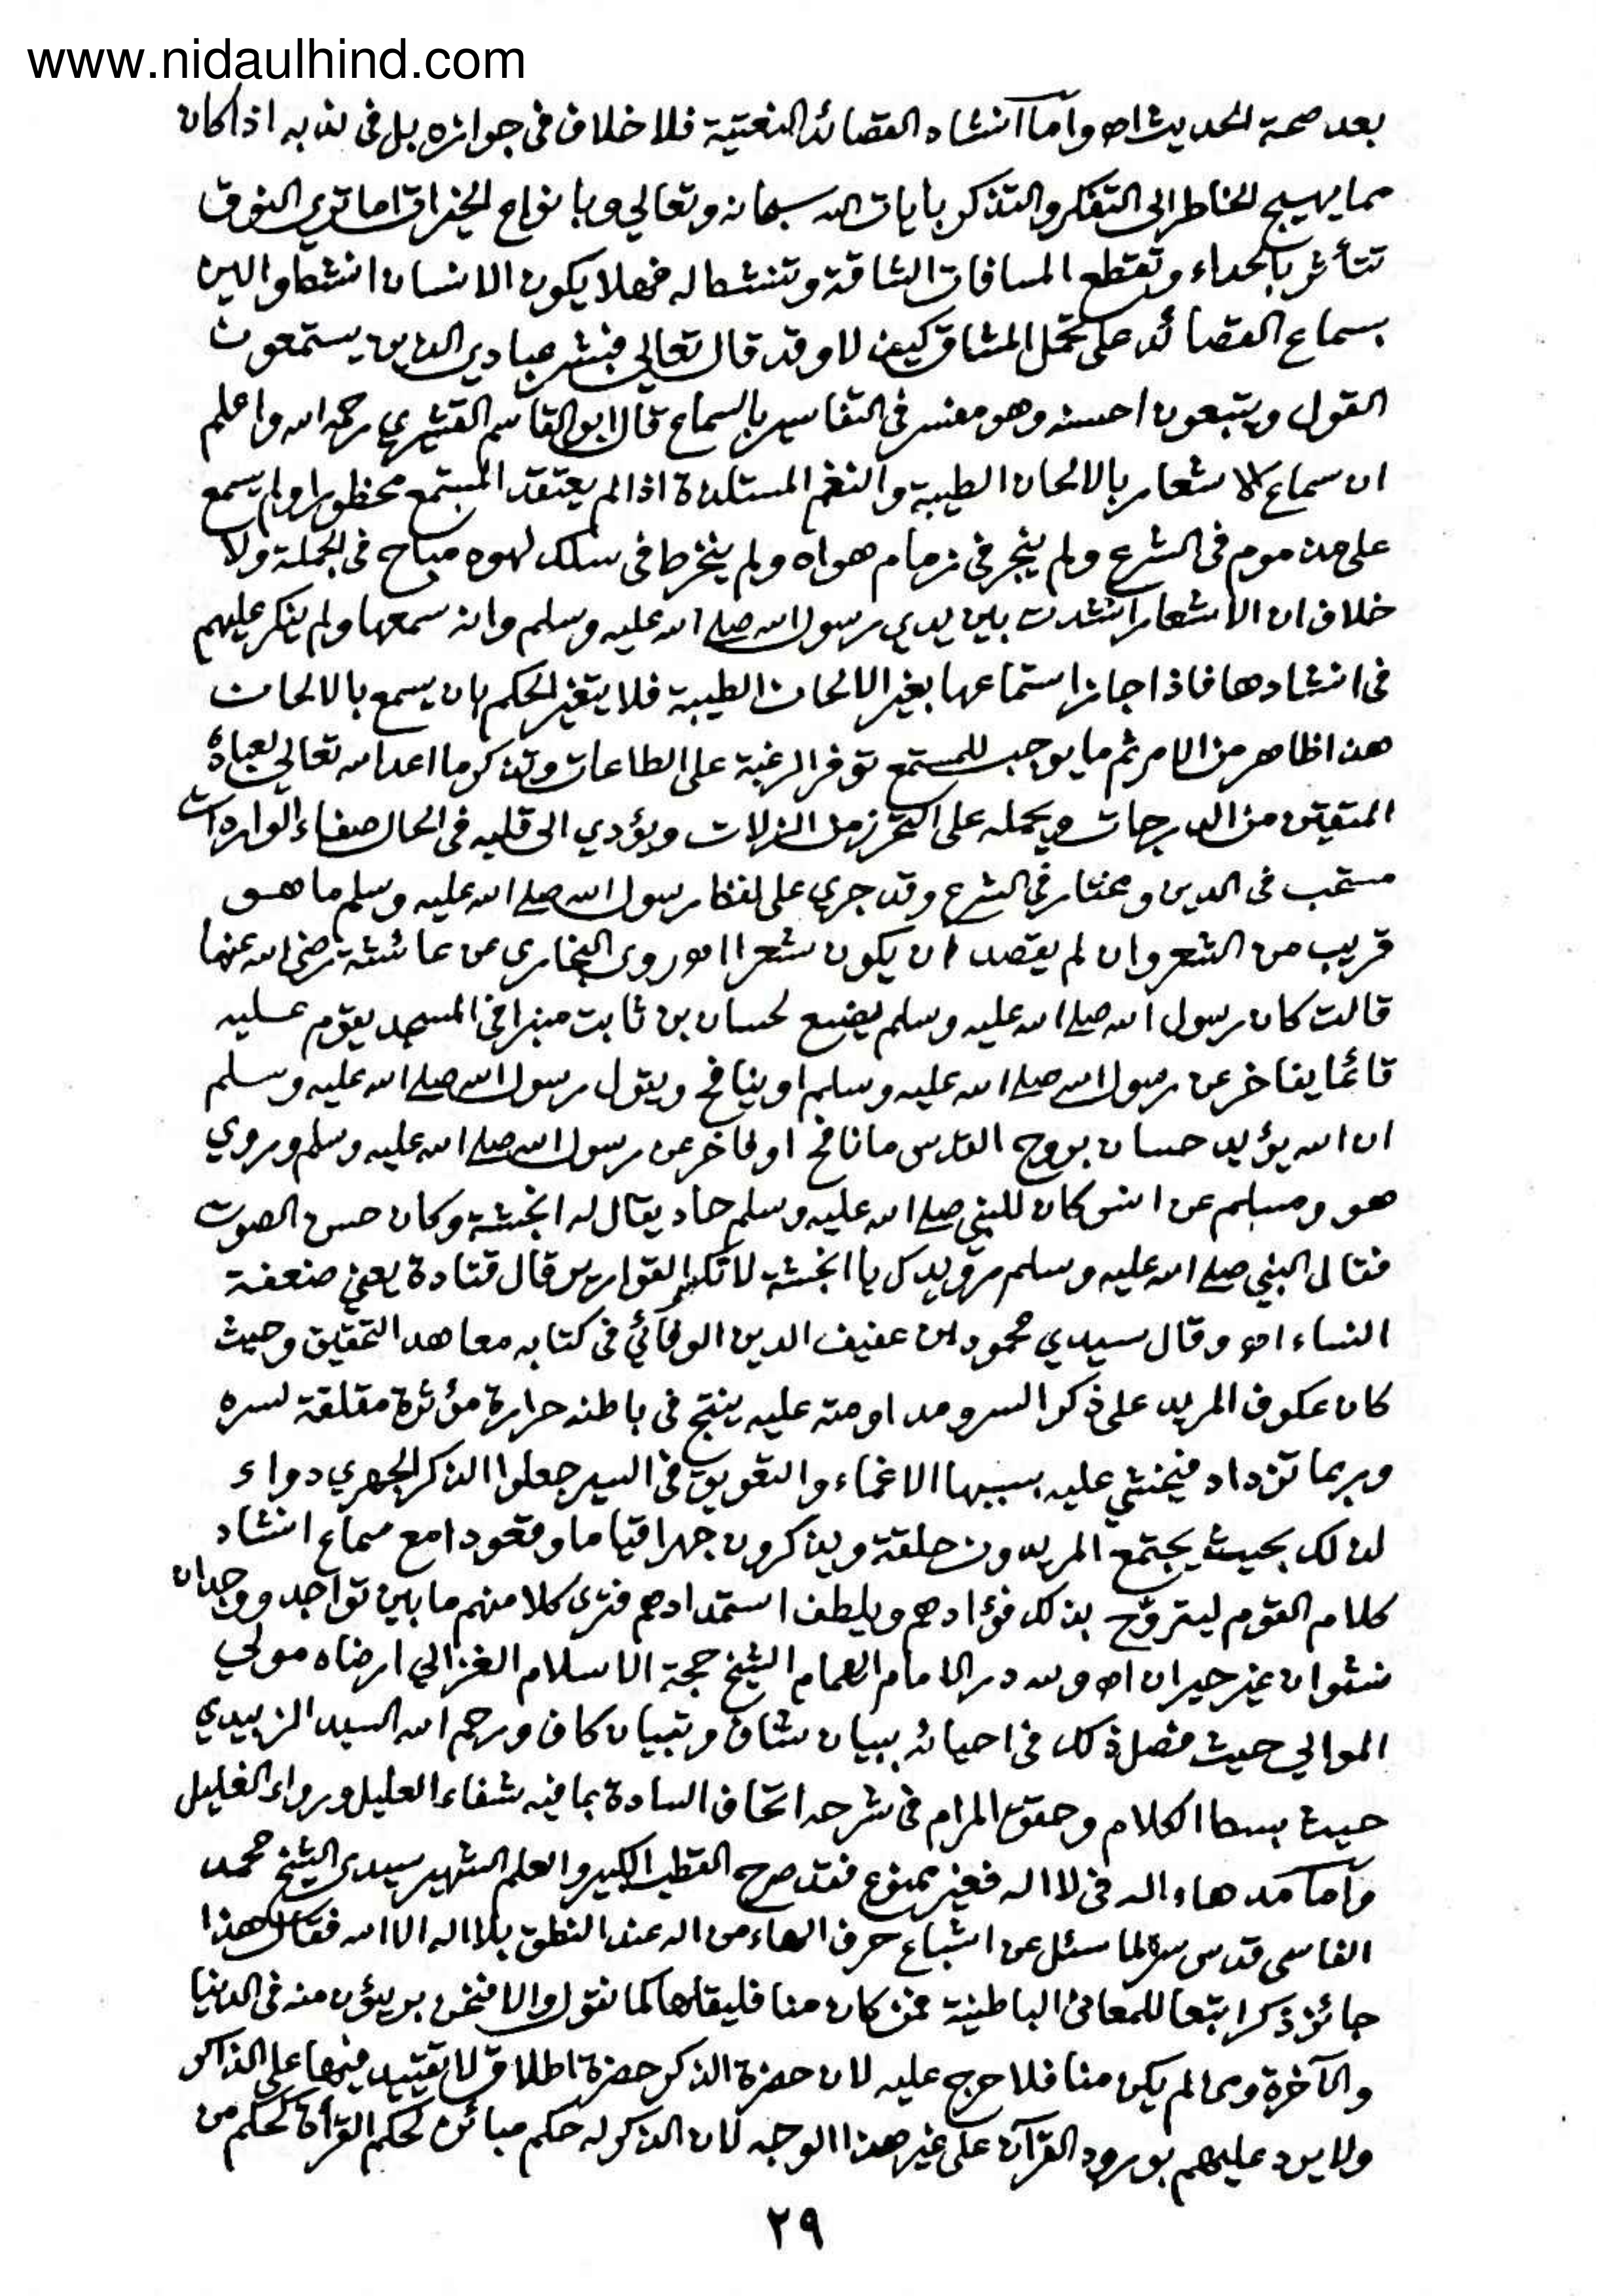 www.nidaulhind.com
بعد صحة الحديث اه وأما انشاد القصائد النعتية فلا خلاف في جوازه بل في ندبه اذا كان
مما يهيج الخاطر الى التفكر والتذكر بايات الله سبحانه وتعالي وبانواع الخيرات اما تري النوق
تتأثر بالحداء وتقطع المسافات الشاقة وتنشط له فهلا يكون الانسان انشط والين
بسماع القصائد على تحمل المشاق كيف لا وقد قال تعالي فبشر عبادي الذين يستمعون
القول ويتبعون احسنه وهو مفسر في التفاسير بالسماع قال ابو القاسم القشيري رحمه الله واعلم
ان سماع الاشعار بالالحان الطيبة والنغم المستلذة اذا لم يعتقد المستمع محظورا ولم يسمع
على مذموم في الشرع ولم ينجر في زمام هواه ولم ينخرط في سلك لهوه مباح في الجملة ولا
خلاف ان الاشعار انشدت بين يدي رسول الله صلى الله عليه وسلم وانه سمعها ولم ينكر عليهم
في انشادها فاذا جاز استماعها بغير الالحان الطيبة فلا يتغير الحكم بان يسمع بالالحان
هذا ظاهر من الامر ثم ما يوجب للمستمع توفر الرغبة على الطاعات وتذكر ما اعد الله تعالي لعباده
المتقين من الدرجات ويحمله على التحرز من الزلات ويؤدي الى قلبه في الحال صفاء الواردات
مستحب في الدين ومختار في الشرع وقد جري على لفظ رسول الله صلى الله عليه وسلم ما هو
قريب من الشعر وان لم يقصد ان يكون شعرا اه وروى البخاري عن عائشة رضي الله عنها
قالت كان رسول الله صلى الله عليه وسلم يضع لحسان بن ثابت منبرا في المسجد يقوم عليه
قائما يفاخر عن رسول الله صلى الله عليه وسلم او ينافح ويقول رسول الله صلى الله عليه وسلم
ان الله يؤيد حسان بروح القدس ما نافح او فاخر عن رسول الله صلى الله عليه وسلم وروي
هو ومسلم عن انس كان للنبي صلى الله عليه وسلم حاد يقال له انجشة وكان حسن الصوت
فقال النبي صلى الله عليه وسلم رويدك يا انجشة لا تكسر القوارير قال قتادة يعني ضعفة
النساء اه وقال سيدي محمود بن عفيف الدين الوفائي في كتابه معاهد التحقيق وحيث
كان عكوف المريد على ذكر السر ومداومته عليه ينتج في باطنه حرارة مؤثرة مقلقة لسره
وربما تزداد فيخشي عليه بسببها الاغماء والتعويق في السير جعلوا الذكر الجهري دواء
لذلك بحيث يجتمع المريدون حلقة ويذكرون جهرا قياما وقعودا مع سماع انشاد
كلام القوم ليتروح بذلك فؤادهم ويلطف استمدادهم فترى كلا منهم ما بين تواجد ووجدان
نشوان غير حيران اه ولله در الامام الهمام الشيخ حجة الاسلام الغزالي ارضاه مولي
الموالي حيث فصل ذلك في احيائه ببيان شاف وتبيان كاف ورحم الله السيد الزبيدي
حيث بسط الكلام وحقق المرام في شرحه اتحاف السادة بما فيه شفاء العليل ورواء الغليل
وأما مد هاء اله في لا اله فغير ممنوع فقد صرح القطب الكبير والعلم الشهير سيدي الشيخ محمد
الفاسي قدس سره لما سئل عن اشباع حرف الهاء من اله عند النطق بلا اله الا الله فقال هذا
جائز ذكرا تبعا للمعاني الباطنية فمن كان منا فليقلها كما نقول والا فنحن بريؤن منه في الدنيا
والآخرة ومن لم يكن منا فلا حرج عليه لان حضرة الذكر حضرة اطلاق لا تقييد فيها على الذاكر
ولا يرد عليهم بورود القرآن على غير هذا الوجه لان الذكر له حكم مبائن لحكم القرأة لحكم من
٢٩